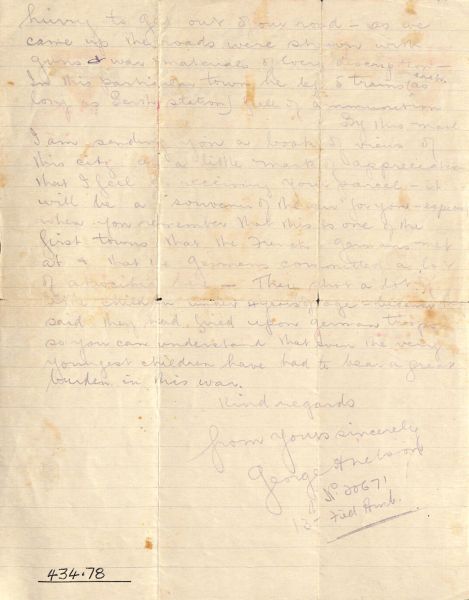 hurry to get out of our road – as we
came up the roads were strewn with
guns & war materials of every description –
In this particular town he left 5 trains (each
long as station) full of ammunition
By this mail
I am sending you a book of views of
this city as a little mark of appreciation
that I feel at receiving your parcel – it
will be a souvenir of the war for you –
when you remember that this is one of the
first towns that the French & Germans met
at & that the Germans committed a lot
of atrocities – They shot a lot of
little children under years of age – because
said they had fired upon german troops
so you can understand that even the very
youngest children have had to bear a great
burden in this war.
Kind regards
from Yours sincerely
George A
No. 20671
Field Amb.
434.78